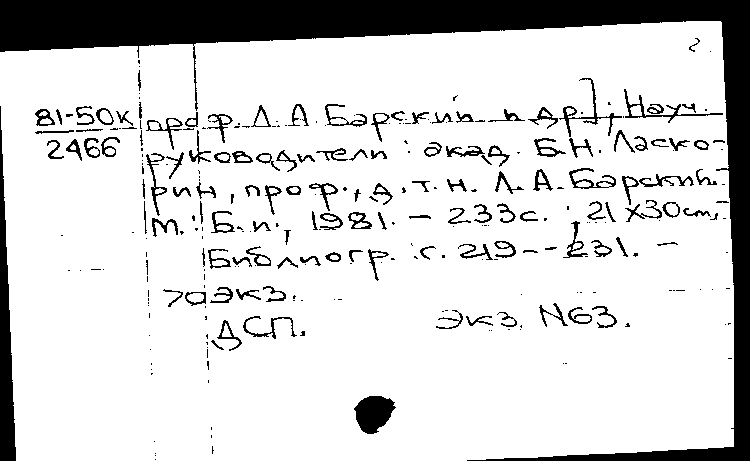 2
81-50к проф. Л. А. Барский и др.]; Науч.
2466 руководители: акад. Б.Н. Ласко-
рин, проф., д.т.н. Л.А. Барский.-
М.: Б.и., 1981. - 233с.; 21х30см,-
Библиогр.: с. 219--231. -
70экз.
ДСП. Экз. N63.